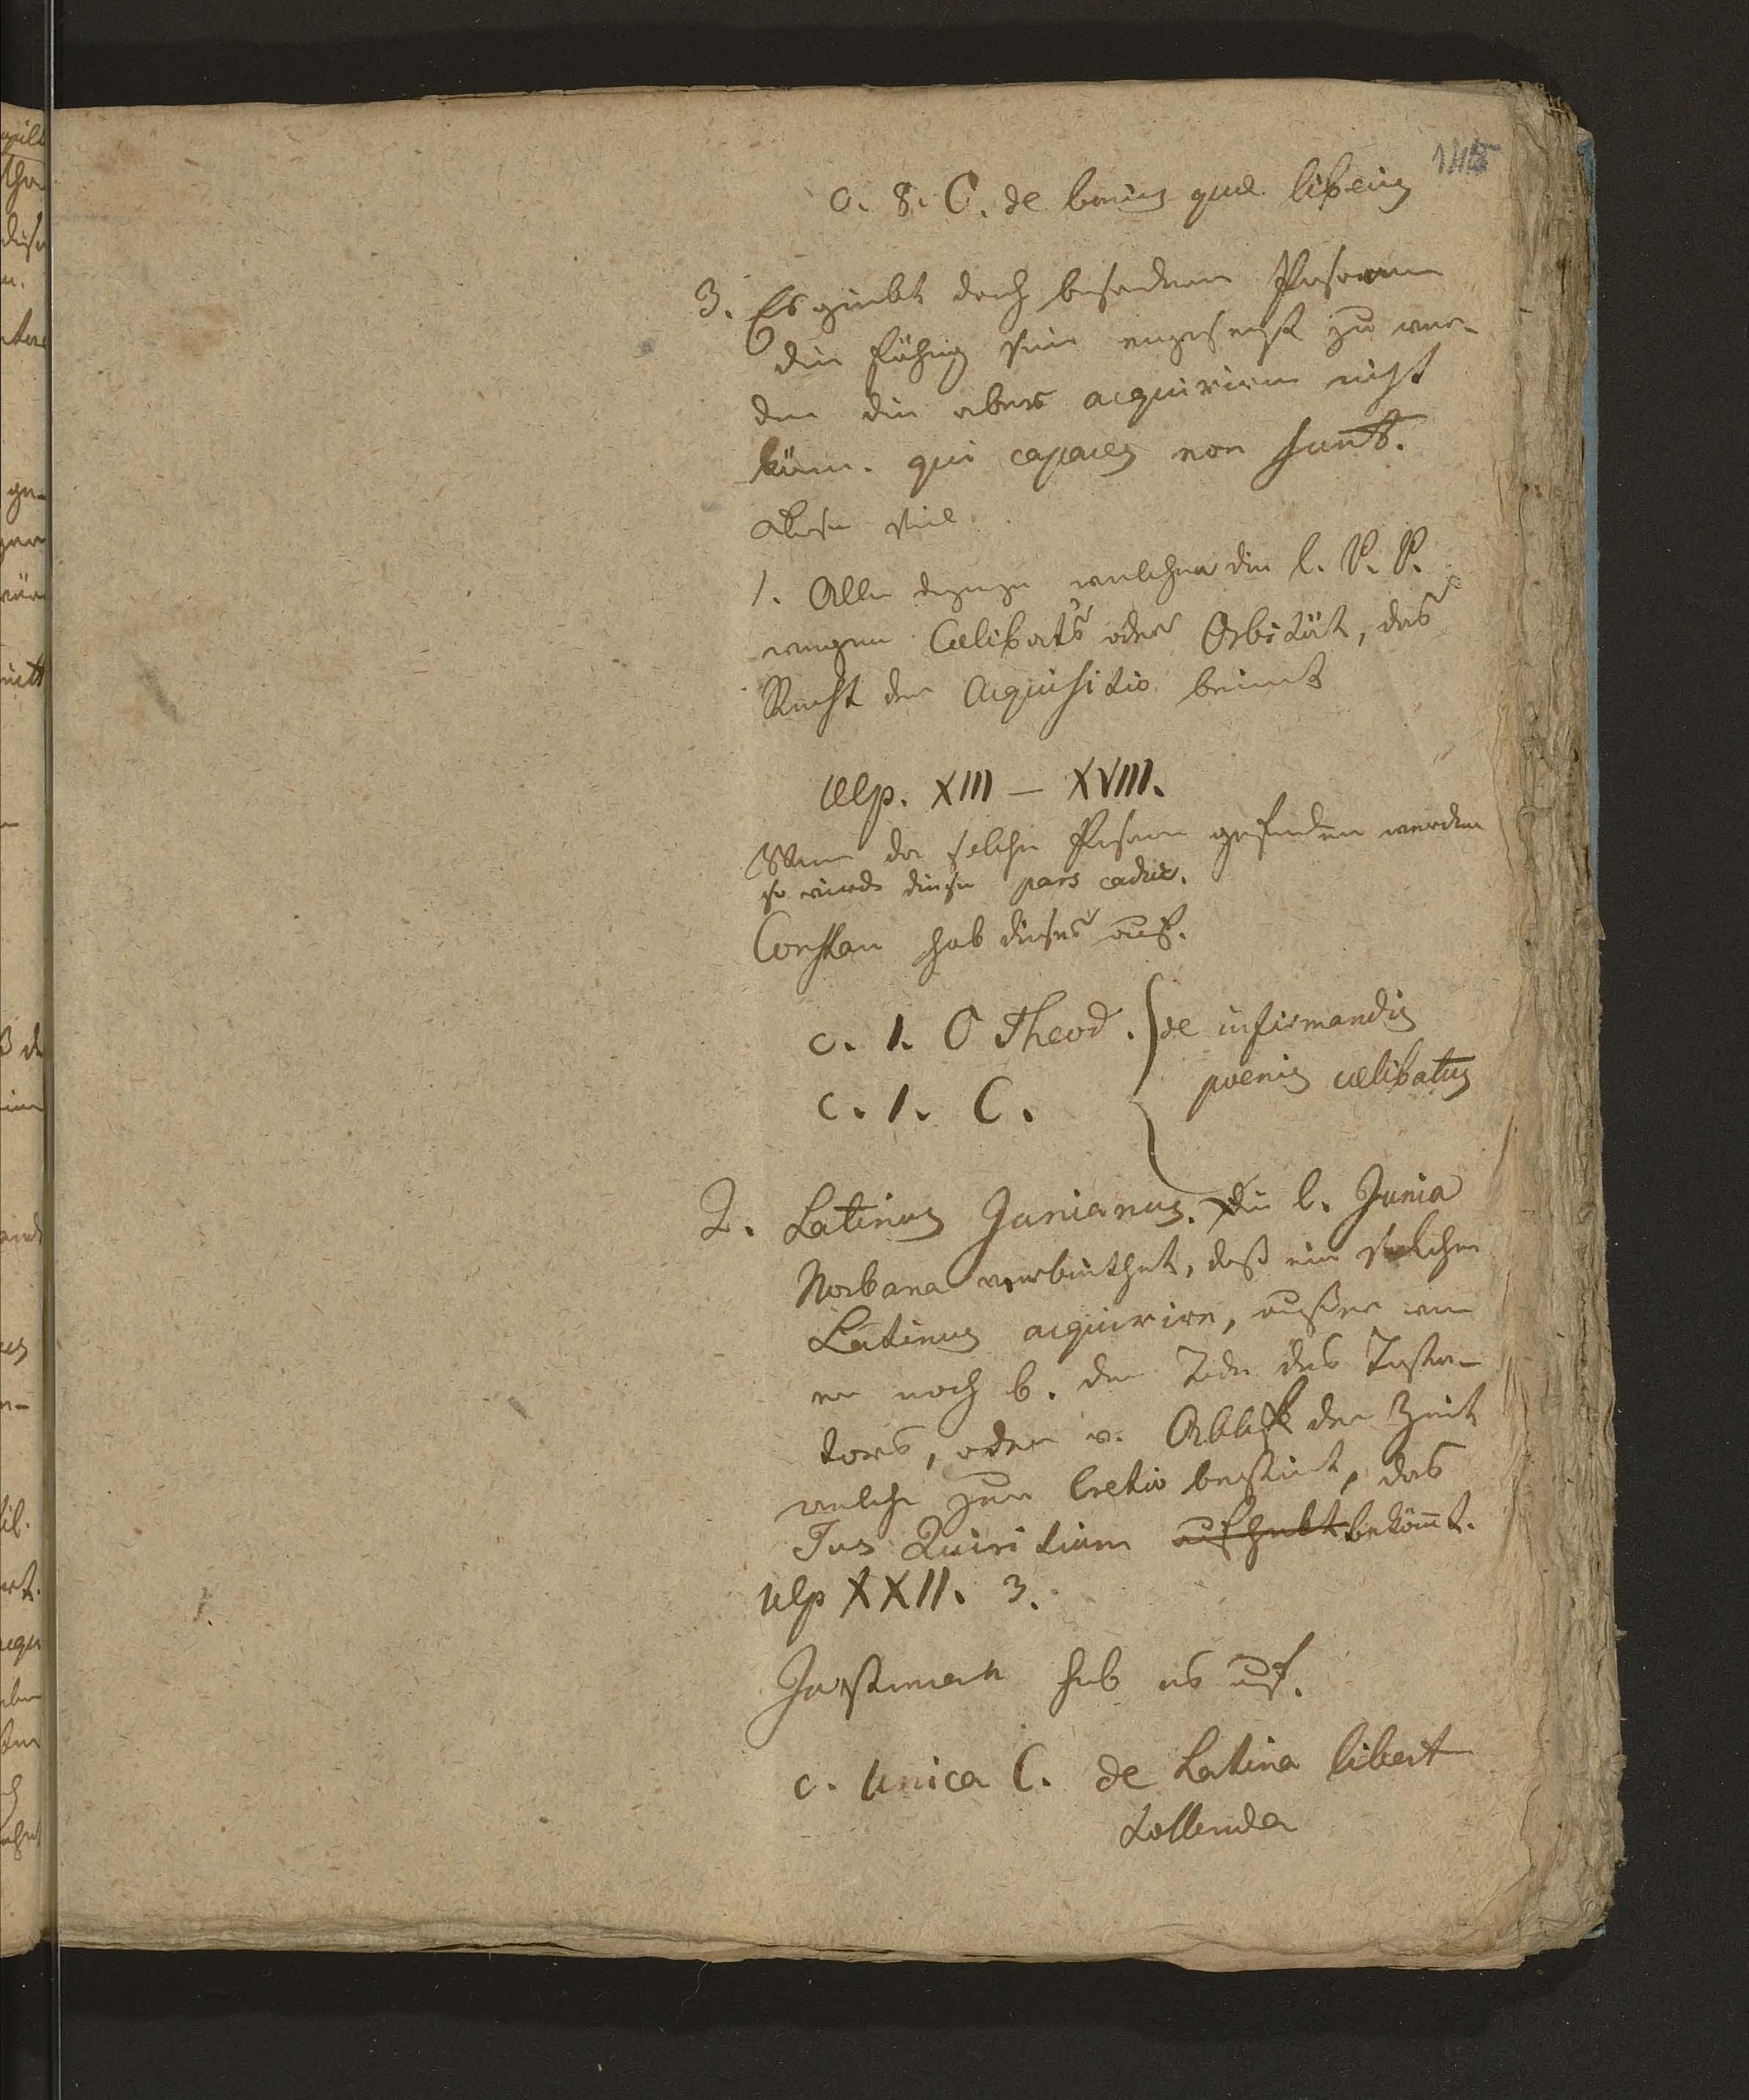 145
c. 8. C. de bonis quae liberis
3. Es giebt doch besondere Personen
die fähig sein eingesetzt zu wer-
den die aber acquiriren nicht
könn. qui capaces non sunt.
diese sind
1. Alle diejenige welchen die l. P. P.
wegen Caelibats oder Orbität, das
Recht der Acquisitio benimt
Ulp. XIII – XVIII.
Wenn da solche Person gefunden werden
so wird diese pars caduc.
Constan hob dieses auf.
c. 1. C Theod. de infirmandis
c. 1. C. poenis caelibatus
2. Latinus Junianus. Die l. Junia
Norbana verbiethet, daß ein solcher
Latinus acquirire, außer wen
er noch b. dem Tode des Testa-
tors, oder v. Ablauf der Zeit
welche zur Cretio bestimt, das
Jus Quiritium bekömt.
Ulp XXII. 3.
Justinian hob es auf.
c. unica C. de Latina libert
tollenda